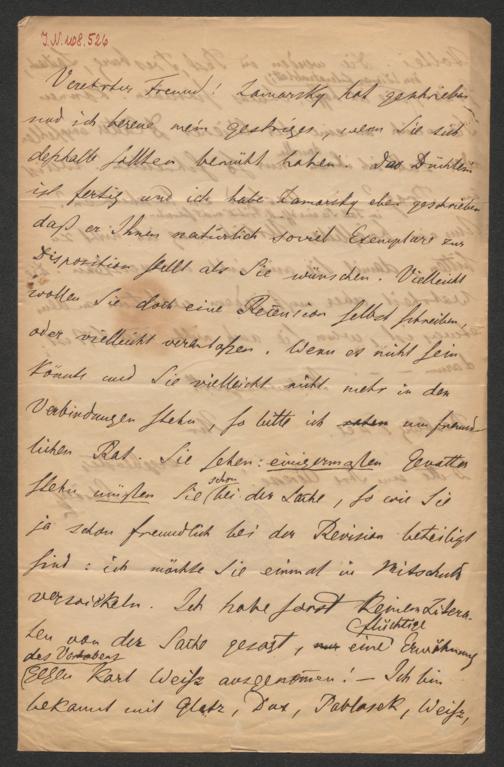 J.N. 108.526
Verehrter Freund! Zamarsky hat geschrieben
und ich bereue mein gestriges wenn Sie sich
deßhalb sollten bemüht haben. Das Büchlein
ist fertig und ich habe Zamarsky eben geschrieben
daß er Ihnen natürlich soviel Exemplare zur
Disposition stellt als Sie wünschen. Vielleicht
wollen Sie doch eine Recension selbst schreiben,
oder vielleicht veranlaßen. Wenn es nicht sein
könnte und Sie vielleicht nicht mehr in den
Verbindungen stehn, so bitte ich um freund
lichen Rat. Sie sehen: einigermaßen Gevatter
stehn müßten Sie schon bei der Sache, so wie Sie
ja schon freundlich bei der Revision beteiligt
sind: ich möchte Sie einmal in Mitschuld
verwickeln. Ich habe sonst keinem Litera-
ten von der Sache gesagt, nur eine flüchtige Erwähnung
des Vorhabens
gegen Karl Weiß ausgenomen! – Ich bin
bekannt mit Glatz, Dux, Pablasek, Weiß,